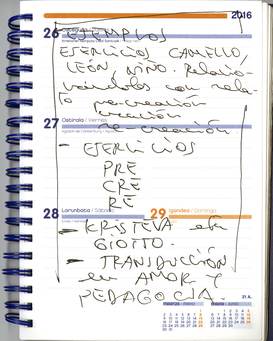 2016
26
EJEMPLOS
EJERCICIOS CAMELLO/
LEÓN NIÑO. Relacio-
nándolos con rela-
to pre-creación
creación
re-creación
27 Ostirala / Viernes
- EJERCICIOS
PRE
CRE
RE
28 Larunbata / Sábado
29 Igandea / Domingo
- KRISTEVA
GIOTTO.
- TRANSDUCCIÓN
en AMOR Y
PEDAGOGIA.
21 A.